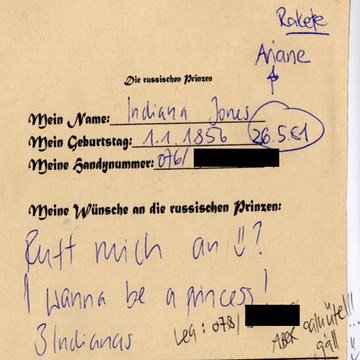 Rakete
Ariane
Die russischen Prinzen
Mein Name: Indiana Jones
Mein Geburtstag: 1.1.1856 26.5.81
Meine Handynummer: 076/
Meine Wünsche an die russischen Prinzen:
Ruft mich an !?
I wanna be a princess!
3 Indianas
Lea: 078/
ABER
gäll